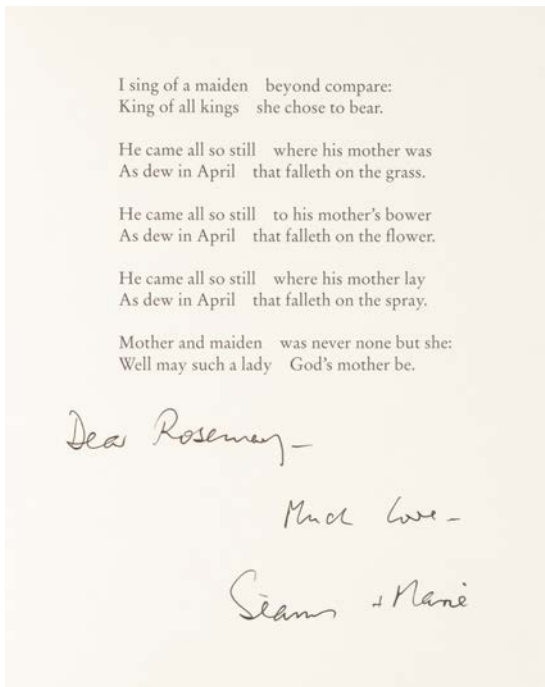 I sing of a maiden beyond compare:
King of all kings she chose to bear.
He came all so still where his mother was
As dew in April that falleth on the grass.
He came all so still to his mother's bower
As dew in April that falleth on the flower.
He came all so still where his mother lay
As dew in April that falleth on the spray.
Mother and maiden was never none but she:
Well may such a lady God's mother be.
Dear Rosemary –
Much love –
Séamus + Marie